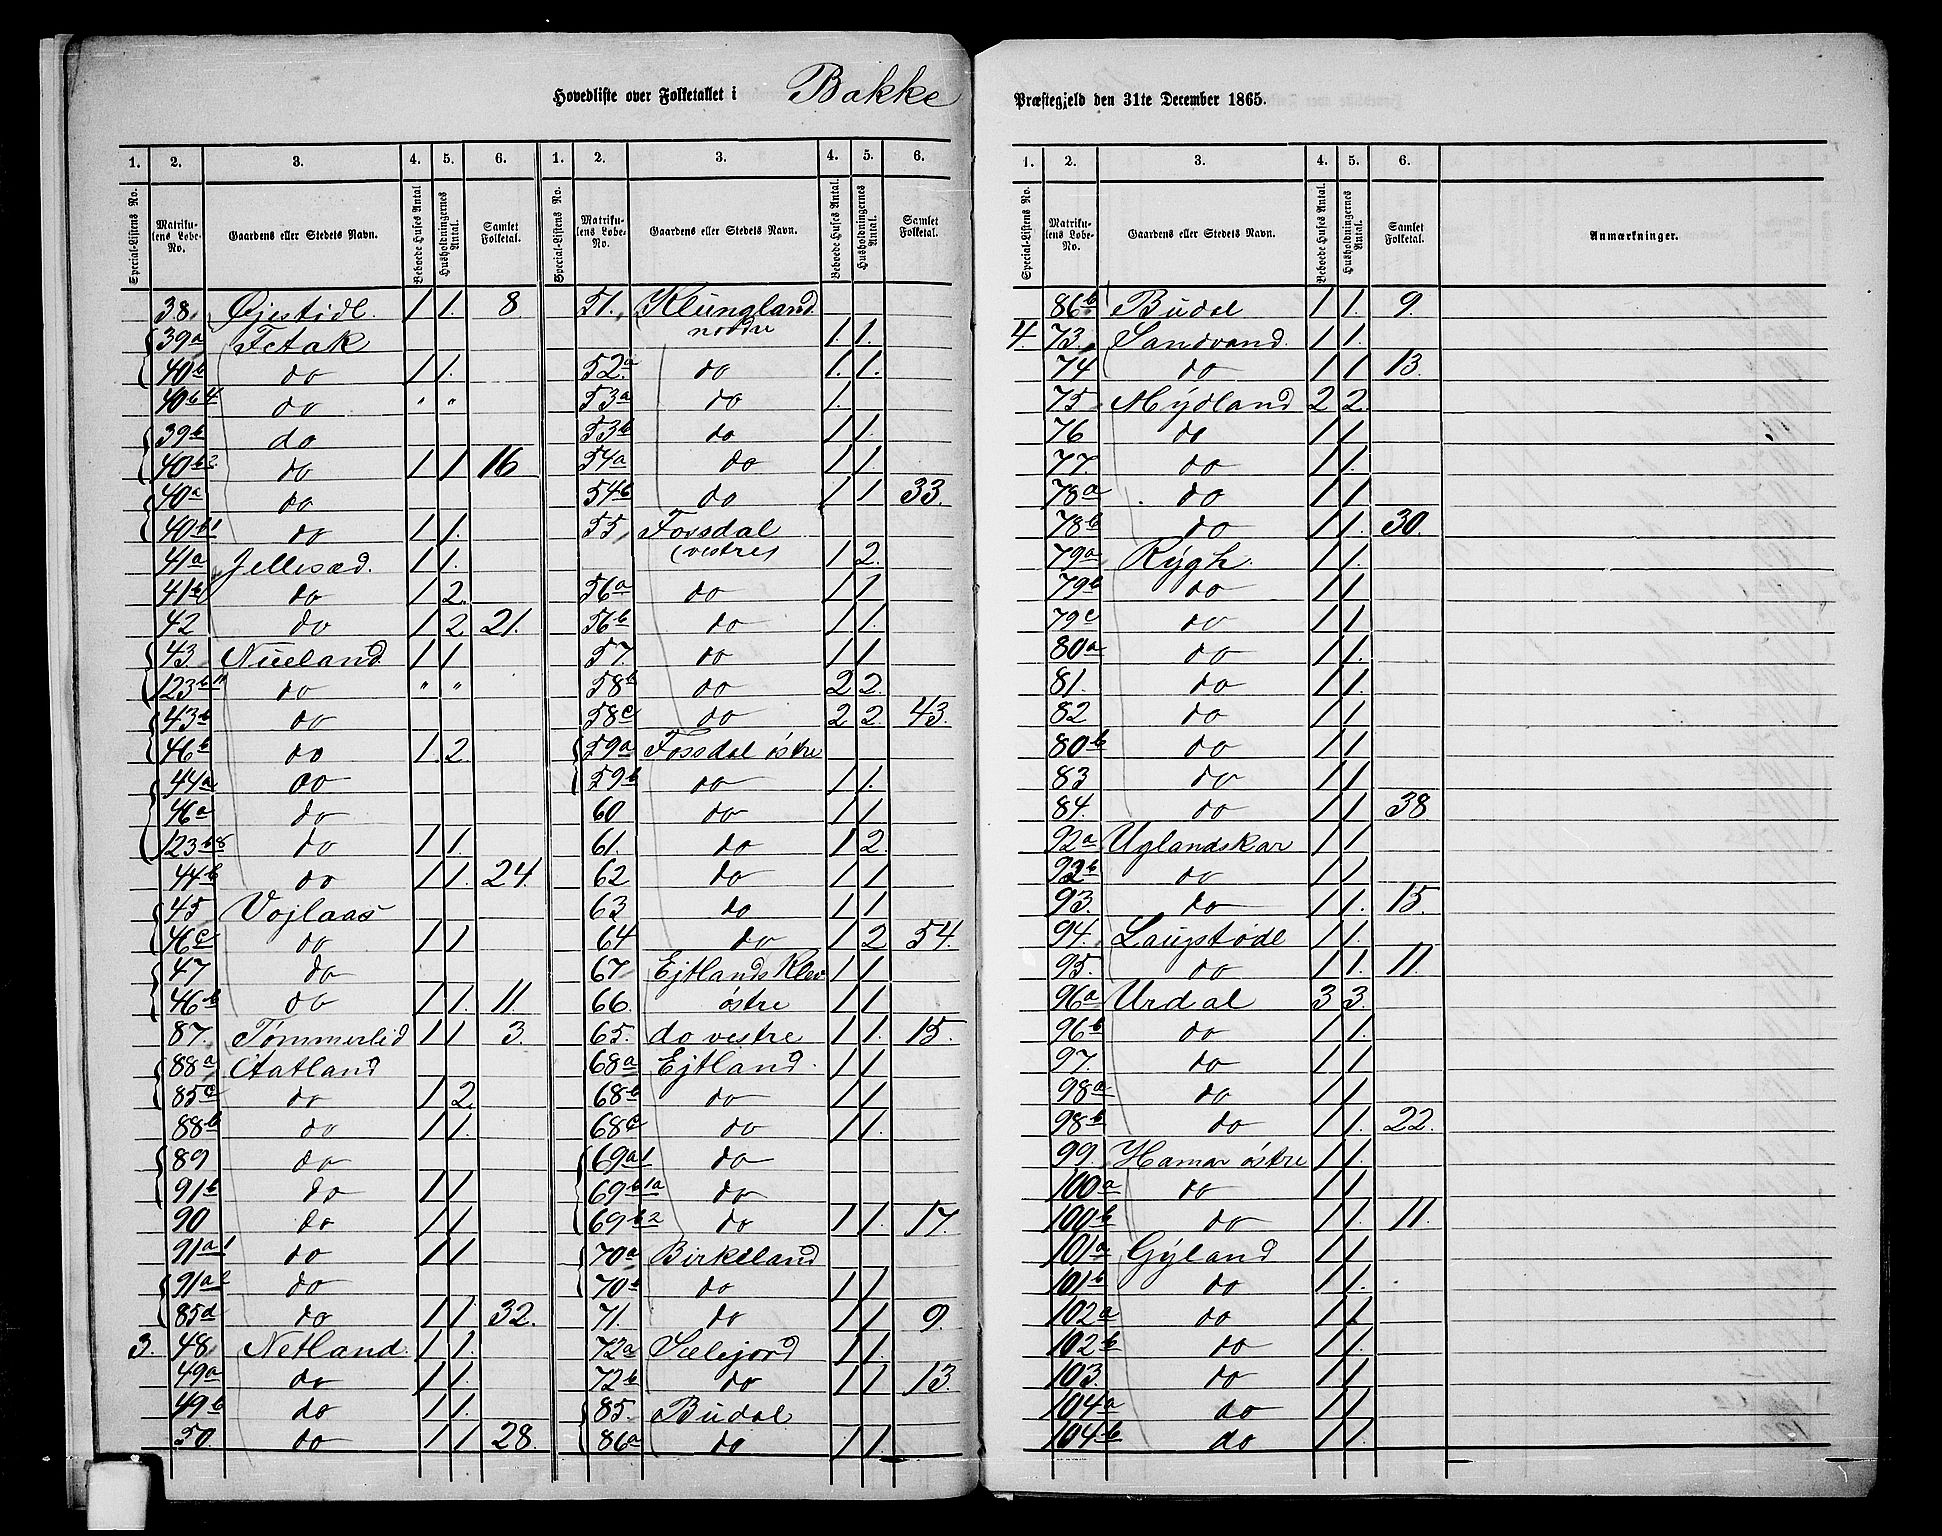 Hovedliste over Folketallet i Bakke Præstegjeld den 31te December 1865.
1. 2. 3. 4. 5. 6.
Special-Listens No. Matrikulens Løbe-No. Gaardens eller Stedets Navn. Beboede Huses Antal. Husholdningernes Antal. Samlet Folketal.
38. Øjestødl. 1 1. 8.
39a Fetak
40b do 1 1.
40b4 do " "
39b do
40b2 do 1 1 16
40a do
40b1 do 1 1.
41a Jellesæd. 1 1.
41b do 1 2.
42 do 1 2 21.
43. Nueland 1 1
123b11 do " "
43b do
46b do 1 2
44a do
46a do
123b8 do 1 1.
44b do 1 1. 24.
45 Vojlaas
46c do 1 1
47 do
46b do 1 1. 11.
87. Tømmerlid 1 1 3.
88a Aatland
85c do 1 2.
88b do 1 1.
89 do
91b do 1 1
90 do 1 1
91a1 do 1 1
91a2 do
85d do 1 1 32.
3. 48. Netland. 1 1.
49a do 1 1.
49b do 1 1.
50. do 1 1 28.
1. 2. 3. 4. 5. 6.
Special-Listens No. Matrikulens Løbe-No. Gaardens eller Stedets Navn. Beboede Huses Antal. Husholdningernes Antal. Samlet Folketal.
51. Klungland
nordre 1. 1.
52a do 1. 1.
53a do 1.
53b do 1 1.
54a do 1 1.
54b do 1 1 33.
55 Fossdal
(vestre) 1 2.
56a do 1 1
56b do 1 1.
57. do 1 1
58b do 2 2.
58c do 2 2. 43.
59a Fossdal østre
59b do 1 1.
60 do 1 1
61. do 1 2.
62 do 1 1
63 do 1 1
64 do 1 2 54.
67. Ejtlands Klev 1 1
66. østre 1 1
65. do vestre 1 1. 15.
68a Ejtland. 1 1
68b do 1 1
68c do 1 1.
69a1 do
69b1a do
69b2 do 1 1. 17.
70a Birkeland
70b do 1 1
71. do 1 1 9.
72a Selejord 1 1.
72b do 1 1 13.
85. Budal
86a do 1 1
1. 2. 3. 4. 5. 6.
Special-Listens No. Matrikulens Løbe-No. Gaardens eller Stedets Navn. Beboede Huses Antal. Husholdningernes Antal. Samlet Folketal. Anmærkninger.
86b Budal 1 1. 9.
4. 73. Sandvand. 1 1.
74 do 1 1 13.
75 Mydland 2 2.
76 do 1 1
77. do 1 1.
78a do 1 1
78b do 1 1. 30.
79a Rygh. 1 1.
79b do 1 1
79c do 1 1
80a do 1 1.
81. do 1 1.
82 do 1 1.
80b do 1 1
83 do 1 1
84. do 1 1 38.
92a Uglandskar 1 1
92b do 1 1
93. do 1 1. 15.
94. Laugstødl 1 1.
95. do 1 1. 11.
96a Urdal 3 3.
96b do 1 1.
97. do 1 1
98a do 1 1
98b do 1 1. 22.
99. Hamar østre 1 1
100a do 1 1
100b do 1 1. 11.
101a Gyland 1 1
101b do 1 1.
102a do 1 1
102b do 1 1.
103. do 1 1.
104a do 1 1
104b do 1 1